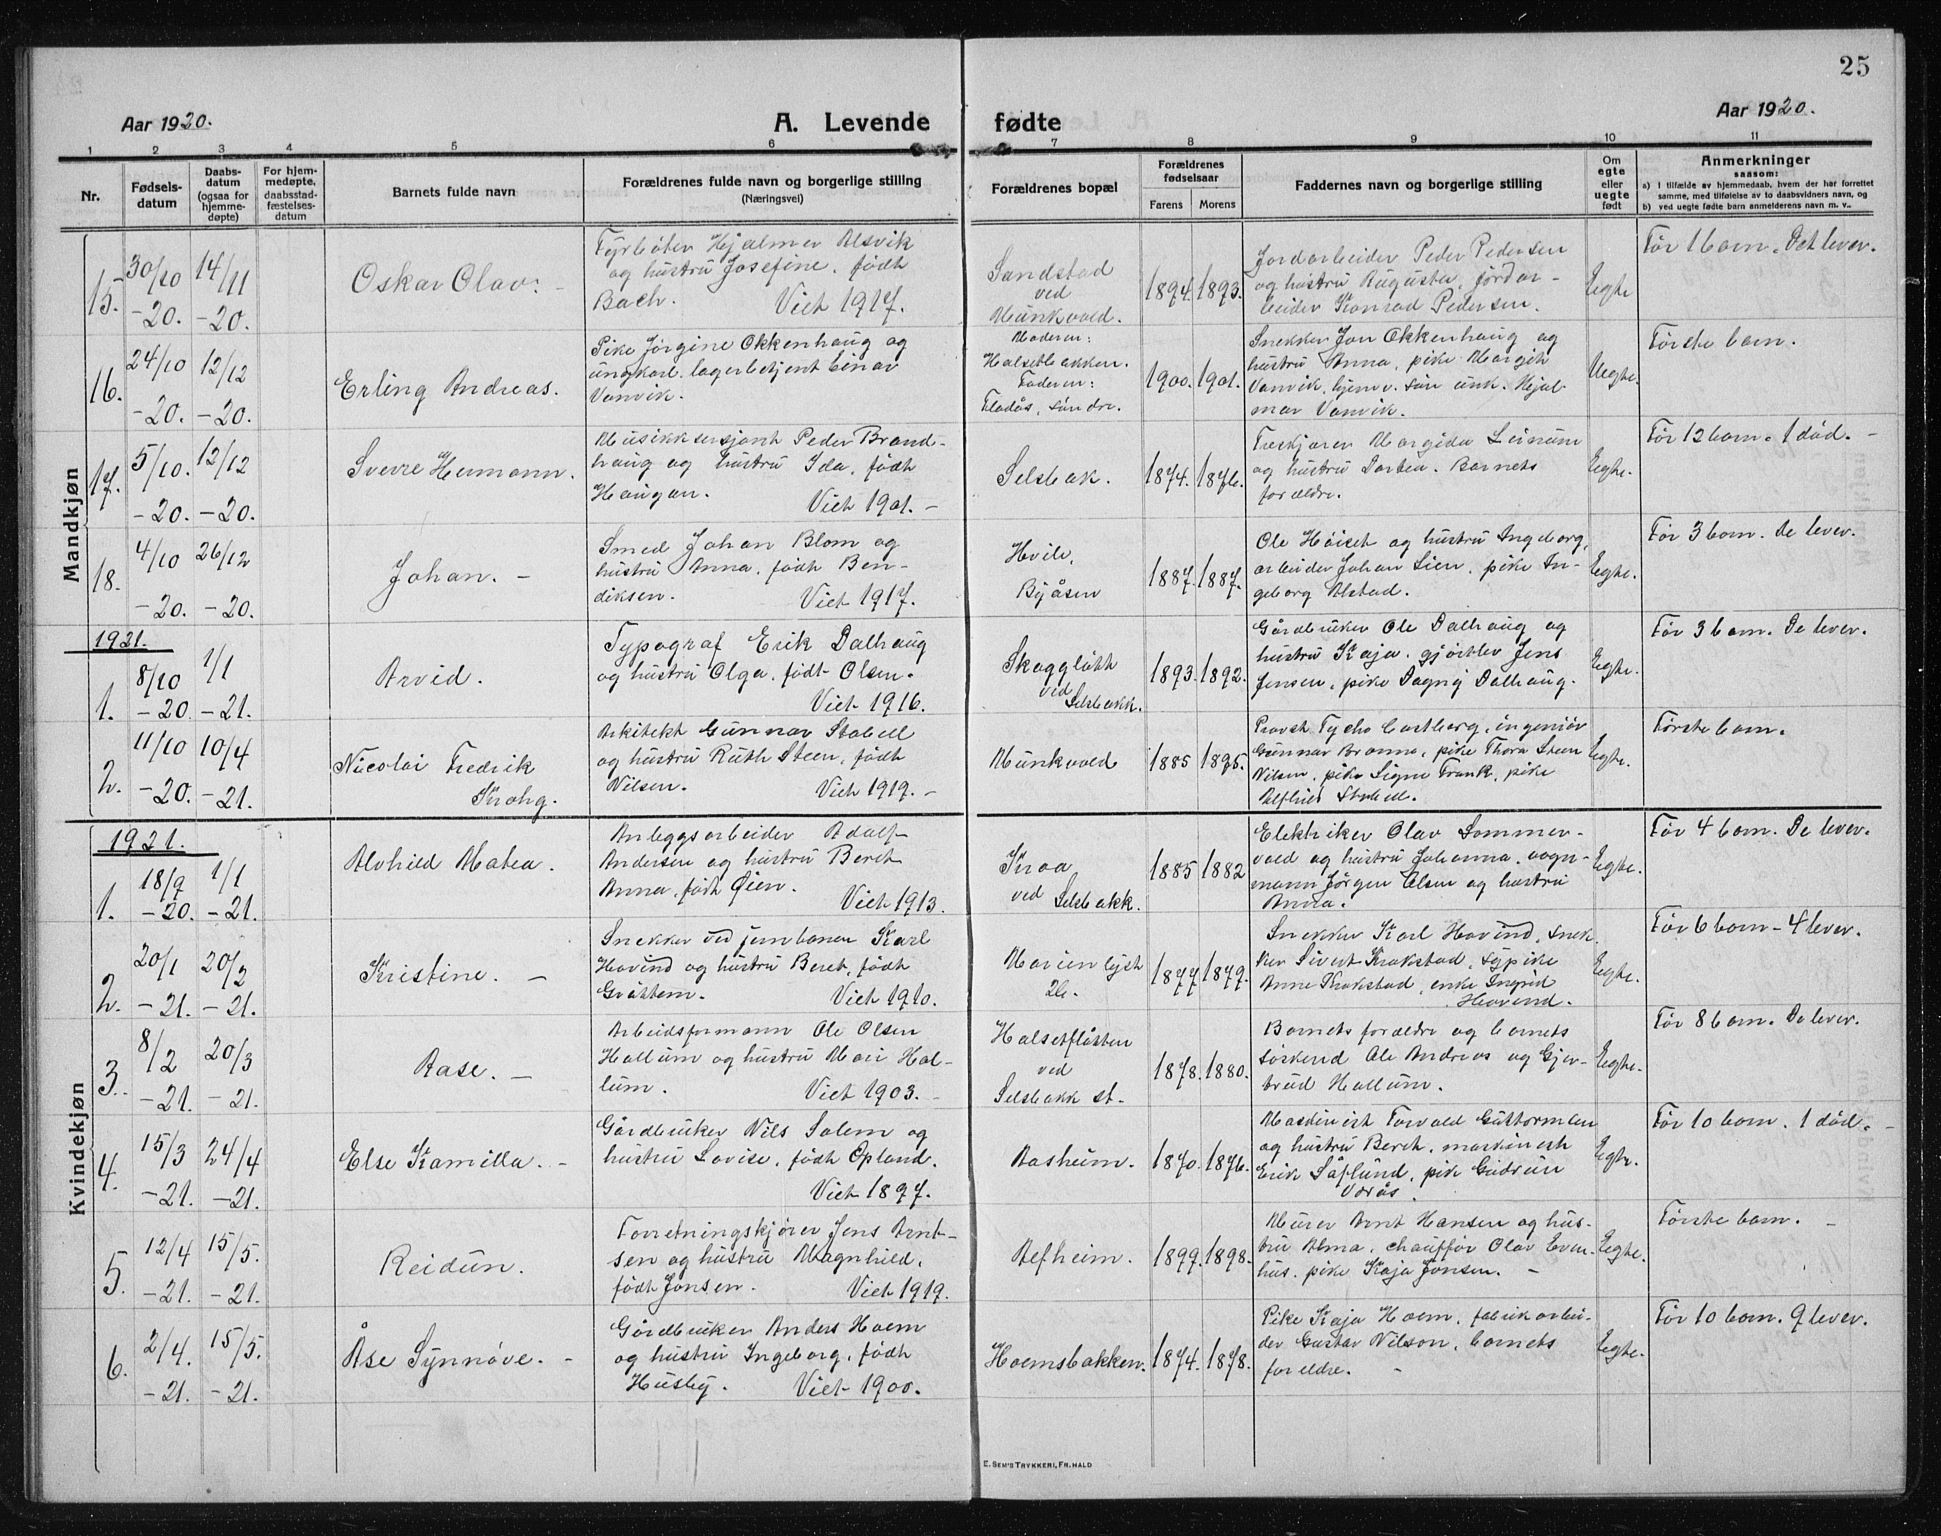 25
Aar 1920.
A. Levende fødte
Aar 1920.
1 2 3 4 5 6 7 8 9 10 11
Nr.
Fødsels-
datum
Daabs-
datum
(ogsaa for
hjemme-
døpte)
For hjem-
medøpte,
daabsstad-
fæstelses-
datum
Barnets fulde navn
Forældrenes fulde navn og borgerlige stilling
(Næringsvei)
Forældrenes bopæl
Forældrenes
fødselsaar
Farens Morens
Faddernes navn og borgerlige stilling
Om
egte
eller
uegte
født
Anmerkninger
saasom:
a) i tilfælde av hjemmedaab, hvem der har forrettet
samme, med tilføielse av to daabsvidners navn, og
b) ved uegte fødte barn anmelderens navn m. v..
Mandkjøn
15. 30/10 -20. 14/11 -20.
Oskar Olav.
Fyrbøter Hjalmer Alsvik
og hustru Josefine, født
Bach. Viet 1917.
Sandstad
ved
Munkvold.
1894. 1893.
Jordarbeider Peder Pedersen
og hustru Augusta, jordar-
beider Konrad Pedersen.
Egte
Før 1 barn. Det lever.
16. 24/10 -20. 12/12 -20.
Erling Andreas.
Pike Jørgine Okkenhaug og
ungkarl. lagerbetjent Einar
Vanvik.
Moderen:
Halsetbakken.
Faderen:
Fladås, søndre.
1900. 1901.
Snekker Jon Okkenhaug og
hustru Anna, pike Margit
Vanvik, unk. Hjal-
mar Vanvik.
Uegte.
Første barn.
17. 5/10 -20. 12/12 -20.
Sverre Hermann.
Musikksersjant Peder Brand-
haug og hustru Ida, født
Haugan.
Viet 1901. -
Selsbak.
1874. 1876.
Træskjærer Margido Leinum
og hustru Dortea. Barnets
forældre.
Egte.
Før 12 barn. 1 død. -
18. 4/10 -20. 26/12 -20.
Johan. -
Smed Johan Blom og
hustru Anna, født Ben-
diksen. Viet 1917.
Hvile,
Byåsen
1887. 1887.
Ole Høiset og hustru Ingeborg,
arbeider Johan Lien, pike In-
geborg Alstad.
Egte.
Før 3 barn. De lever.
1921.
1. 8/10 -20. 1/1 -21.
Arvid.
Typograf Erik Dalhaug
og hustru Olga, født Olsen.
Viet 1916.
Skoggløtt
ved
Selsbakk.
1893. 1892.
Gårdbruker Ole Dalhaug og
hustru Kaja, gjørtler Jens
Jensen, pike Dagny Dalhaug.
Egte.
Før 3 barn. De lever.
2. 11/10 -20. 10/4 -21.
Nicolai Fredrik
Krohg.
Arkitekt Gunnar Stabell
og hustru Ruth Steen, født
Nilsen. Viet 1919. -
Munkvold
1885 1895.
Provst Tycho Castberg, ingeniør
Gunnar Bronno, pike Thora Steen
Nilsen, pike Signe Frank, pike
Stabell.
Egte.
Første barn.
Kvindekjøn
1921.
1. 18/9 -20. 1/1 -21.
Alvhild Matea.
Anleggsarbeider Adolf
Andersen og hustru Beret
Anna, født Øien.
Viet 1913.
Kroa
ved Selsbakk.
1885 1882
Elektriker Olav Sommer-
vold og hustru Johanna, vogn-
mann Jørgen Olsen og hustru
Anna.
Egte.
Før 4 barn. De lever.
2. 20/1 -21. 20/2 -21.
Kristine. -
Snekker ved jernbanen Karl
Hovind og hustru Beret, født
Gråttem. Viet 1910.
Marienlyst
26.
1877. 1879.
Snekker Karl Hovind, snek-
ker Sivert Krokstad, sypike
Anne Krokstad, enke Ingrid
Hovind.
Egte.
Før 6 barn - 4 lever.
3. 8/2 -21. 20/3 -21.
Aase. -
Arbeidsformann Ole Olsen
Hallum og hustru Mari Hal-
lum. Viet 1903. -
Halsetfløtten
ved
Selsbakk st.
1878. 1880.
Barnets forældre og barnets
søskend Ole Andreas og Gjer-
trud Hallum.
Egte.
Før 8 barn. De lever.
4. 15/3 -21. 24/4 -21.
Else Kamilla. -
Gårdbruker Nils Solem og
hustru Lovise, født Opland.
Viet 1897.
Aasheim.
1870. 1876.
Maskinist Torvald Guttormsen
og hustru Beret, maskinist
Erik Säflund, pike Gudrun
Vorås.
Egte.
Før 10 barn. 1 død. -
5. 12/4 -21. 15/5. -21.
Reidun.
Forretningskjører Jens Arnt-
sen og hustru Magnhild,
født Jonsen. Viet 1919.
Alfheim.
1899. 1898.
Murer Arnt Hansen og hus-
tru Alma, chauffør Olav Even-
hus, pike Kaja Jonsen. -
Egte.
Første barn. -
6. 2/4. -21. 15/5. -21.
Åse Synnøve. -
Gårdbruker Anders Hoem
og hustru Ingeborg, født
Husby. Viet 1900.
Hoemsbakken.
1874. 1878.
Pike Kaja Hoem, fabrikarbei-
der Gustav Nilson, barnets
foreldre. -
Egte.
Før 10 barn. 9 lever.
E. SEM'S TRYKKERI, FR.HALD